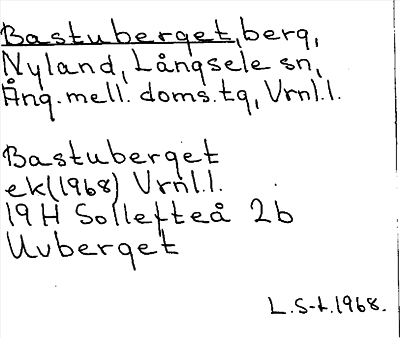 Bastuberget, berg,
Nyland, Långsele sn,
Ång. mell. doms. tg, Vrnl.l.
Bastuberget
ek(1968) Vrnl.l.
19 H Sollefteå 2b
Uvberget
L.S-t. 1968.